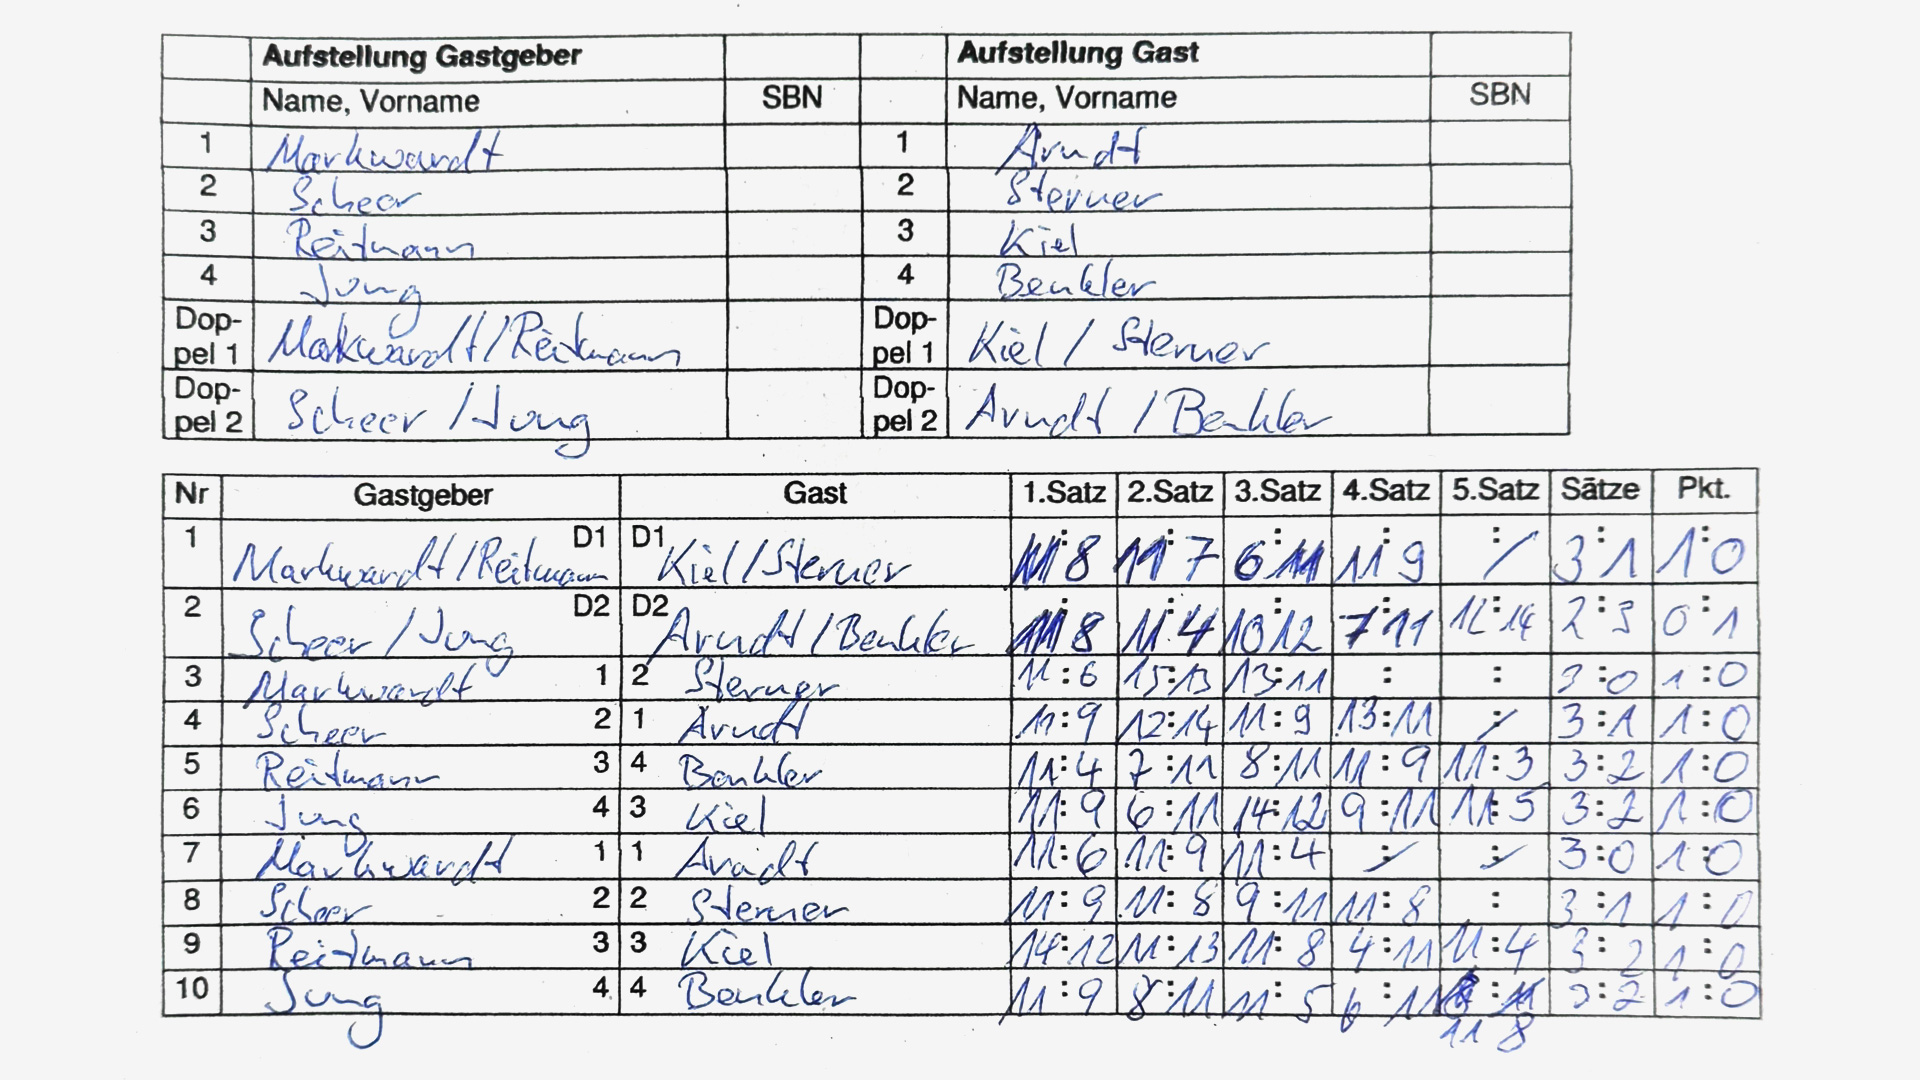 Aufstellung Gastgeber Aufstellung Gast
Name, Vorname SBN Name, Vorname SBN
1 Markwardt 1 Arndt
2 Scheer 2 Sterner
3 Reitmann 3 Kiel
4 Jung 4 Benkler
Dop-pel 1 Markwardt/Reitmann Dop-pel 1 Kiel / Sterner
Dop-pel 2 Scheer / Jung Dop-pel 2 Arndt / Benkler
Nr Gastgeber Gast 1.Satz 2.Satz 3.Satz 4.Satz 5.Satz Sätze Pkt.
1 Markwardt/Reitmann D1 D1 Kiel/Sterner 11:8 11:7 6:11 11:9 :/ 3:1 1:0
2 Scheer / Jung D2 D2 Arndt / Benkler 11:8 11:4 10:12 7:11 12:14 2:3 0:1
3 Markwardt 1 2 Sterner 11:6 15:13 13:11 : : 3:0 1:0
4 Scheer 2 1 Arndt 11:9 12:14 11:9 13:11 :/ 3:1 1:0
5 Reitmann 3 4 Benkler 11:4 7:11 8:11 11:9 11:3 3:2 1:0
6 Jung 4 3 Kiel 11:9 6:11 14:12 9:11 11:5 3:2 1:0
7 Markwardt 1 1 Arndt 11:6 11:9 11:4 :/ :/ 3:0 1:0
8 Scheer 2 2 Sterner 11:9 11:8 9:11 11:8 : 3:1 1:0
9 Reitmann 3 3 Kiel 14:12 11:13 11:8 4:11 11:4 3:2 1:0
10 Jung 4 4 Benkler 11:9 8:11 11:5 6:11 : 3:2 1:0
11 8